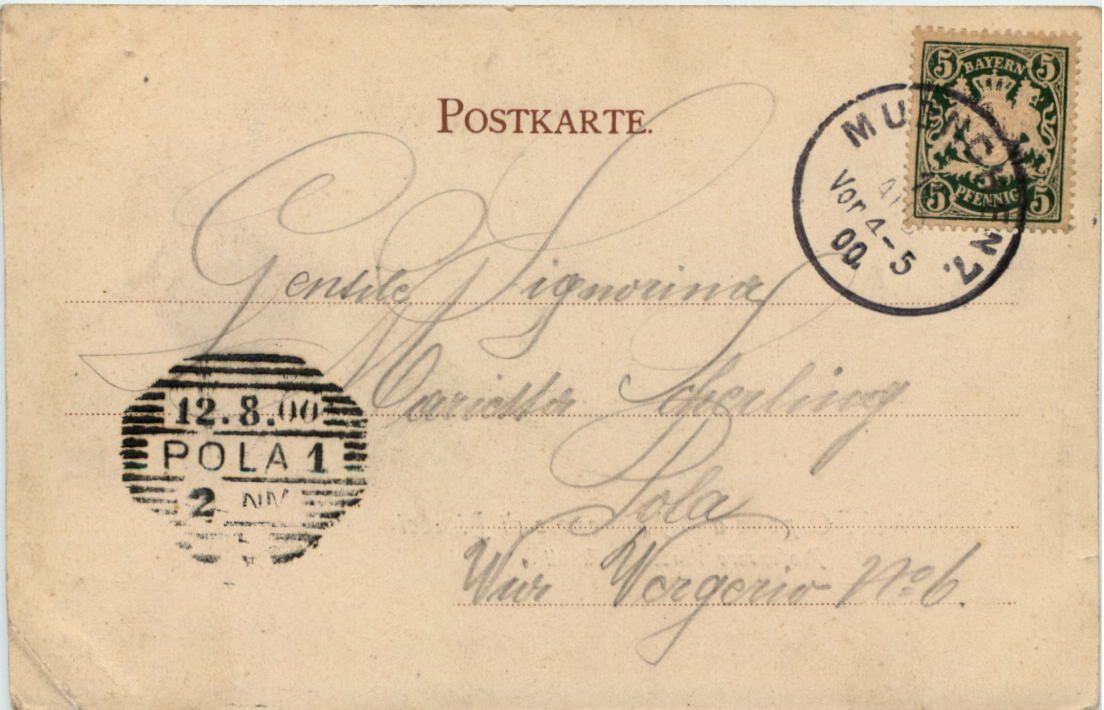 POSTKARTE.
5 BAYERN 5
5 PFENNIG 5
MUENCHEN 7.
Vor 4-5
00.
Gentile Signorina
Marietta
Pola
Via Vergerio No 6.
12.8.00
POLA 1
2